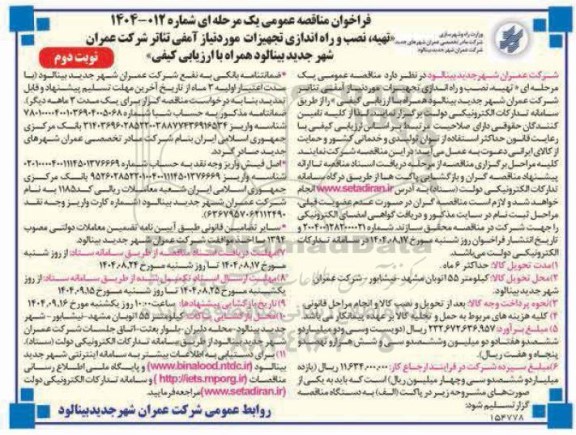 فراخوان مناقصه عمومی یک مرحله ای شماره ۰۱۲-۱۴۰۴
«تهیه، نصب و راه اندازی تجهیزات موردنیاز آمفی تئاتر شرکت عمران
شهر جدید بینالود همراه با ارزیابی کیفی»
نوبت دوم
وزارت راه و شهرسازی
شرکت مادر تخصصی عمران شهرهای جدید
شرکت عمران شهر جدید بینالود در نظر دارد مناقصه عمومی یک
مرحله ای «تهیه، نصب و راه اندازی تجهیزات موردنیاز آمفی تئاتر
شرکت عمران شهر جدید بینالود همراه با ارزیابی کیفی» را از طریق
سامانه تدارکات الکترونیکی دولت برگزار نماید. لذا از کلیه تامین
کنندگان حقوقی دارای صلاحیت
رعایت قانون حداکثر استفاده از توان تولیدی و خدماتی کشور و حمایت
از کالای ایرانی دعوت به عمل می آید در این مناقصه شرکت نمایند.
کلیه مراحل برگزاری مناقصه از مرحله دریافت اسناد مناقصه تا ارائه
پیشنهاد مناقصه گران و بازگشایی پاکت ها از طریق درگاه سامانه
تدارکات الکترونیکی دولت (ستاد) به آدرس www.setadiran.ir انجام
خواهد شد و لازم است مناقصه گران در صورت عدم عضویت قبلی،
مراحل ثبت نام در سایت مذکور و دریافت گواهی امضای الکترونیکی
را جهت شرکت در مناقصه محقق سازند.
تاریخ انتشار فراخوان روز شنبه مورخ ۱۴۰۴.۰۸.۱۷ در سامانه تدارکات
الکترونیکی دولت می باشد.
۱) مدت تحویل کالا: حداکثر ۶ ماه.
۲) محل تحویل کالا: کیلومتر ۵۵ اتوبان مشهد-نیشابور - شرکت عمران
شهر جدید بینالود.
۳) نحوه پرداخت وجه کالا: بعد از تحویل و نصب کالا و انجام مراحل قانونی
۴) کلیه هزینه های مربوط به حمل و تحویل کالا بر عهده پیمانکار می باشد
۵) مبلغ برآورد: ۲۳۲,۶۷۲,۶۳۶,۹۵۷ ریال (دویست و سی و دو میلیارد و
ششصد و هفتاد و دو میلیون و ششصد و سی و شش هزار و نهصد و
پنجاه و هفت ریال).
۶) مبلغ سپرده شرکت در فرایند ارجاع کار: ۱۱,۶۳۴,۰۰۰,۰۰۰ ریال (یازده
میلیارد و ششصد و سی و چهار میلیون ریال) است که باید به یکی از
صورت های مشروحه زیر در پاکت (الف) به دستگاه مناقصه
گزار تسلیم شود:
*ضمانتنامه بانکی به نفع شرکت عمران شهر جدید بینالود (با
مدت اعتبار اولیه ۳ ماه از تاریخ آخرین مهلت تسلیم پیشنهاد و قابل
تمدید بنا به درخواست مناقصه گزار برای یک مدت ۳ ماهه دیگر).
ضمانتنامه مذکور به حساب شبا شماره
شناسه واریز
جمهوری اسلامی ایران بنام شرکت مادر تخصصی عمران شهرهای
جدید صادر گردد.
*اصل فیش واریز وجه نقد به حساب شماره
شناسه واریز
جمهوری اسلامی ایران شعبه معاملات ریالی کد ۱۱۸۵ به نام
شرکت عمران شهر جدید بینالود (شماره کارت واریز وجه نقد
*سایر تضامین قانونی طبق آیین نامه تضمین معاملات دولتی مصوب
۱۳۹۴ با موافقت شرکت عمران شهر جدید بینالود.
۷) مهلت دریافت اسناد مناقصه از طریق سامانه ستاد: از روز شنبه
مورخ ۱۴۰۴.۰۸.۱۷ تا روز شنبه مورخ ۱۴۰۴.۰۸.۲۴
۸) مهلت ارسال اسناد تکمیل شده از طریق سامانه ستاد: از روز
یکشنبه مورخ ۱۴۰۴.۰۸.۲۵ تا روز شنبه مورخ ۱۴۰۴.۰۹.۱۵
۹) تاریخ بازگشایی پیشنهادها: ساعت ۱۰:۰۰ روز یکشنبه مورخ ۱۴۰۴.۰۹.۱۶
۱۰) محل بازگشایی پاکت ها: کیلومتر ۵۵ اتوبان مشهد-نیشابور-شهر
جدید بینالود-محله دلیران-بلوار بعثت-اتاق جلسات شرکت عمران
شهر جدید بینالود از طریق سامانه تدارکات الکترونیکی دولت (ستاد).
۱۱) برای دستیابی به اطلاعات بیشتر به سامانه اینترنتی شهر جدید
بینالود (www.binalood.ntdc.ir) و پایگاه ملی اطلاع رسانی
مناقصات (http://iets.mporg.ir) و سامانه تدارکات الکترونیکی دولت
(www.setadiran.ir) مراجعه فرمایید.
روابط عمومی شرکت عمران شهر جدید بینالود
۱۵۴۷۷۸